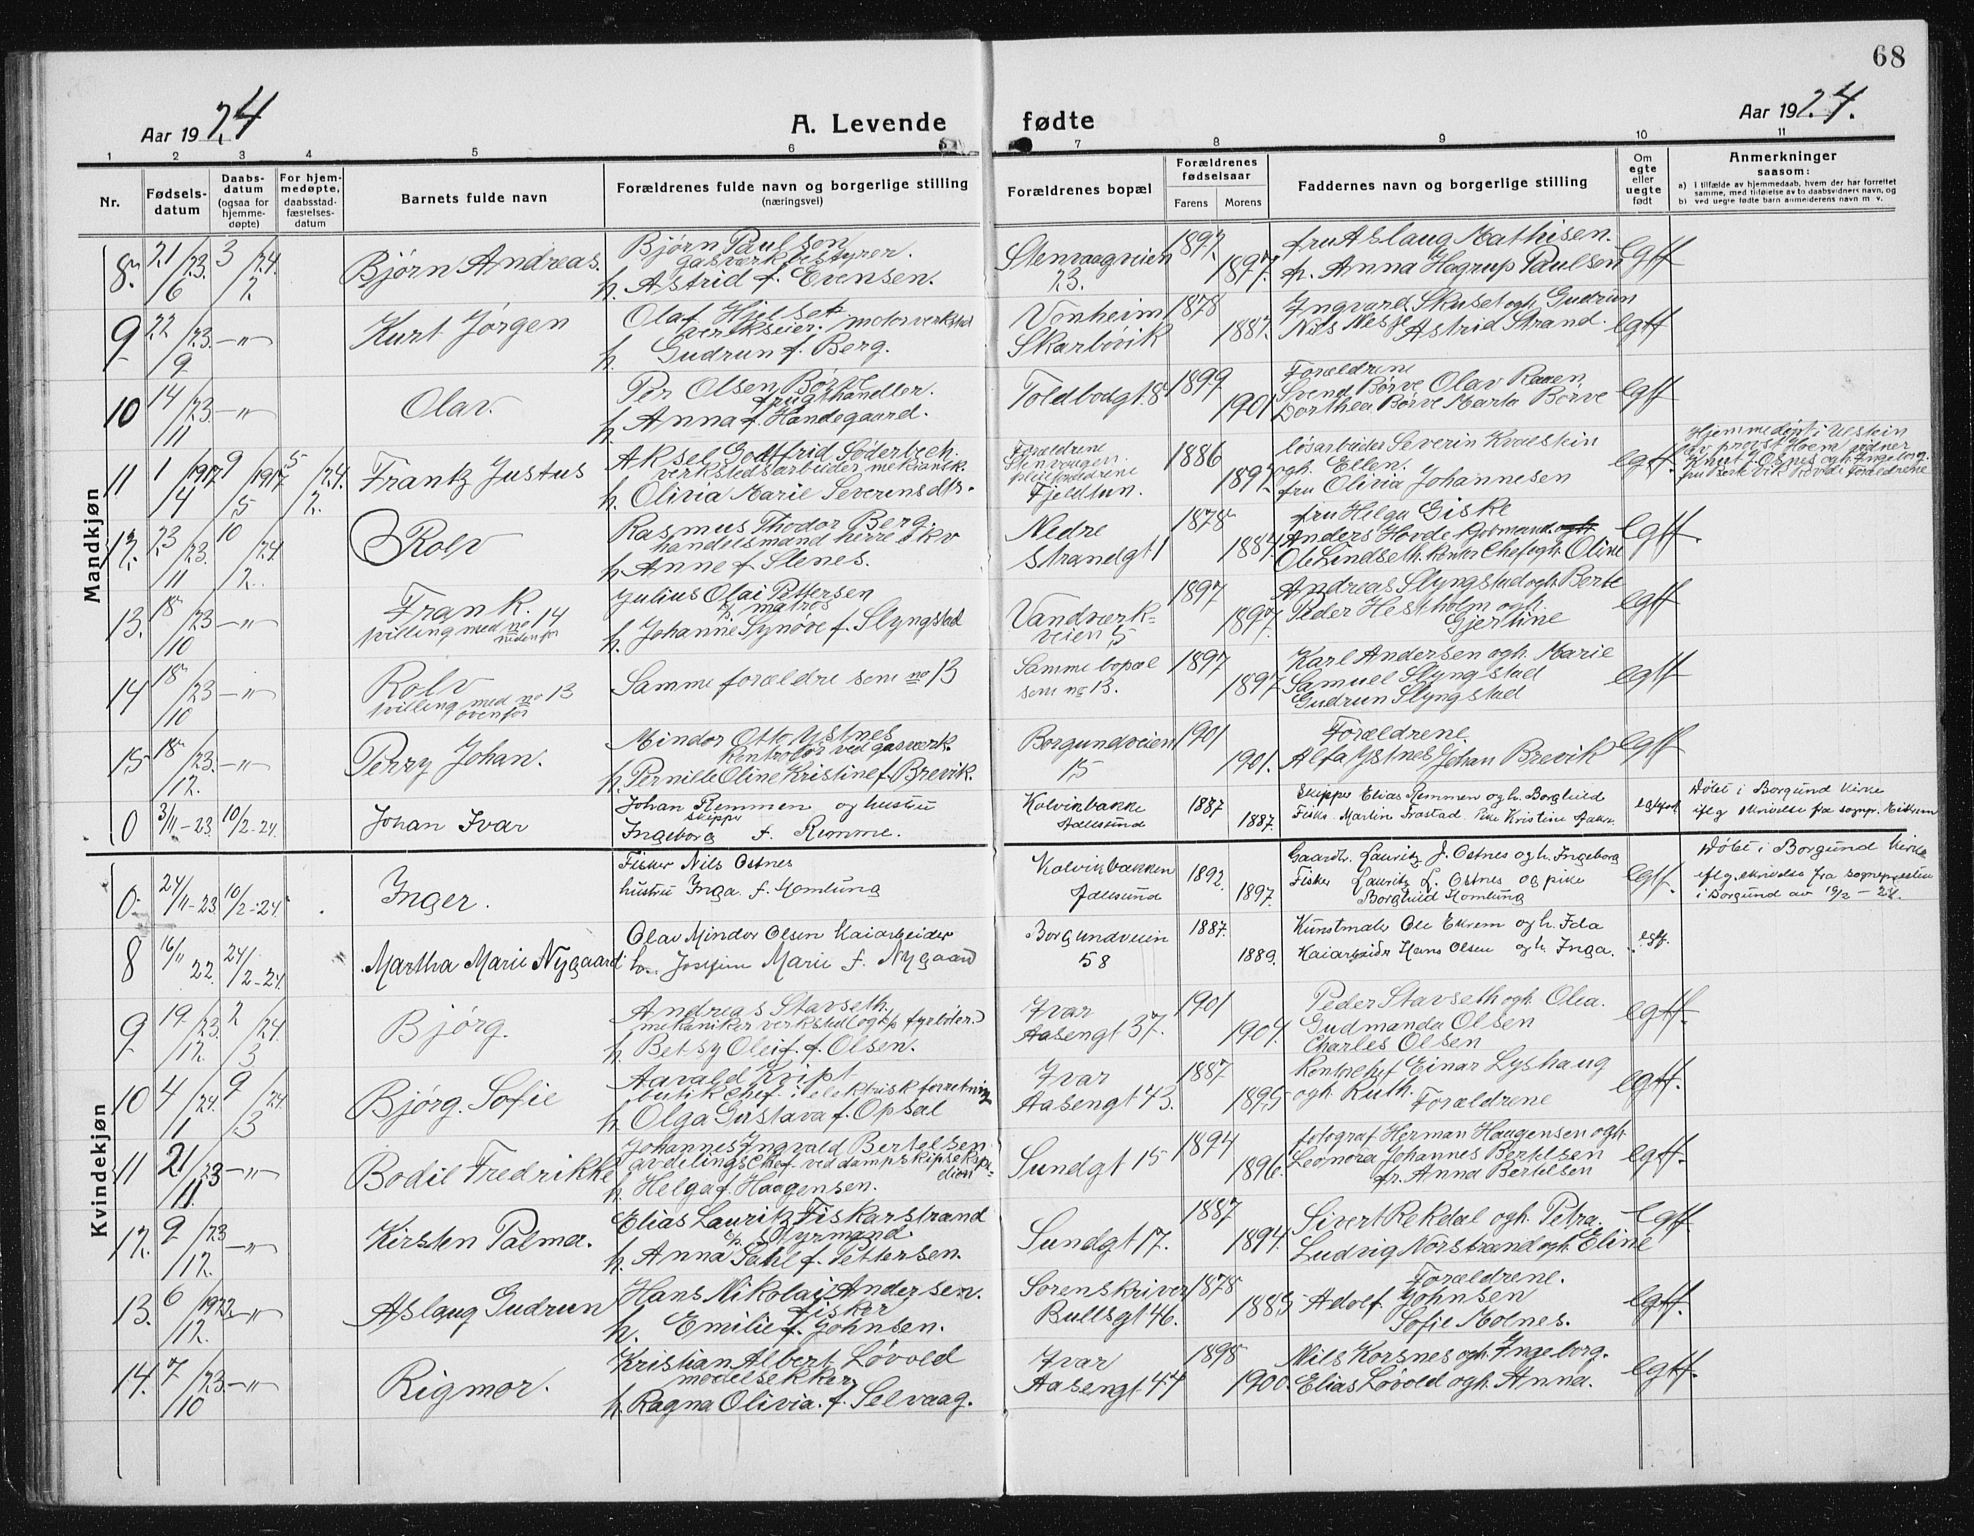 68
Aar 1924
A. Levende fødte
Aar 1924.
1 2 3 4 5 6 7 8 9 10 11
Nr.
Fødsels-
datum
Daabs-
datum
(ogsaa for
hjemme-
døpte)
For hjem-
medøpte,
daabsstad-
fæstelses-
datum
Barnets fulde navn
Forældrenes fulde navn og borgerlige stilling
(næringsvei)
Forældrenes bopæl
Forældrenes
fødselsaar
Farens Morens
Faddernes navn og borgerlige stilling
Om
egte
eller
uegte
født
Anmerkninger
saasom:
a) I tilfælde av hjemmedaab, hvem der har forrettet
samme, med tilføielse av to daabsvidners navn, og
b) ved uegte fødte barn anmelderens navn m. v.
Mandkjøn
8. 21/16 23. 3/2. 24. Bjørn Andreas.
Bjørn Paulson
gasværkbestyrer.
h. Astrid f. Evensen.
Stenvaagveien
23.
1897. 1897.
fru Aslaug Mathisen.
fr. Anna Hagrup Paulsen
Egtf
9 22/9 23. —"— Kurt Jørgen
Olaf Hjelset
verkseier. motorverksted
h. Gudrun f. Berg.
Vonheim
Skarbøvik
1878 1887.
Ingvard Skuset og h. Gudrun
Nils Nesje Astrid Strand.
egtf
10 14/11 23. —"— Olav.
Per Olsen Børve
frugthandler.
h. Anna f. Handegaard.
Toldbodgt. 8
1899 1901
Forældrene
Svend Børve Olav Raaen
Dorthea Børve Marta Børve
egtf
11 1/14 1917 9/5 1917 5/2. 24. Frantz Justus
Aksel Gottfrid Søderbech.
verkstedsarbeider, mekanisk.
h. Olivia Marie Severinsdtr.
Forældrene
Stenvaagen.
pleieforældrene
Fjeldtun.
1886 1897.
løsarbeider Severin Kvalsvin
og h. Ellen.
fru Olivia Johannesen
egtf.
Hjemmedøpt i Ulstein
av provst Hoem vidner
Knut J. Osnes og h. Ingeborg.
12. 23/11 23. 10/2. 24. Rolv
Rasmus Thodor Berg.
handelsmand herre ekv
h. Anne f. Slenes.
Nedre
Strandgt 1
1878 1884.
fru Helga Giske
Anders Hovde kjøbmand og h.
Ole Lindseth. kontorchef og h. Oline
egtf.
13. 18/10 23 —"— Frank.
tvilling med no 14
nedenfor
Julius Olai Pettersen
matros
h. Johanne Synøve f. Slyngstad
Vandværk-
veien 5
1897 1897.
Andreas Slyngstad og h. Berte
Peder Hestholm og h.
Gjertine
egtf
14 18/10 23 —"— Rolv
tvilling med no 13
ovenfor
Samme forældre som no 13
Samme bopæl
som no 13.
1897 1897.
Karl Andersen og h. Marie
Samuel Slyngstad
Gudrun Slyngstad
egtf
15 18/12. 23. —"— Perry Johan.
Mindor Otto Ystnes
kontrolør ved gasværk.
h. Pernille Oline Kristine f. Brevik.
Borgundveien
15
1901 1901.
Forældrene.
Alfa Ystnes Johan Brevik
egtf
0 3/11-23. 10/2-24. Johan Ivar
Johan Remmen og hustru
skipper
Ingeborg f. Remme.
Kolvikbakke
Aalesund
1887 1887.
Skipper Elias Remmen og h. Borghild
Fisk. Martin Trastad. Pike Kristine
Døbt i Borgund kirke
iflg skrivelse fra sogepr. Eikrem
Kvindekjøn
0. 24/11-23. 10/2-24. Inger.
Fisker Nils Ostnes
hustru Inga f. Homlung
Kolvikbakken
Aalesund
1892. 1897.
Gaardbr. Lauritz J. Ostnes og h. Ingeborg
Fisker Lauritz L. Ostnes og pike
Borghild Homlung
egtf.
Døbt i Borgund kirke
iflg. skrivelse fra sognepresten
i Borgund av 19/2 - 24.
8 16/11 22. 24/2-24. Martha Marie Nygaard
Olav Mindor Olsen Kaiarbeider
h. Josefine Marie f. Nygaard
Borgundveien
58
1887. 1889.
Kunstmaler Ole Ekrem og h. Ida
Kaiarbeider Hans Olsen og h. Inga.
egtf.
9 19/12. 23. 2/3 24. Bjørg.
Andreas Stavseth.
mekaniker verksted (og d/s fyrbøter.)
h. Betsy Oleif. f. Olsen.
Ivar
Aasengt 37.
1901 1904.
Peder Stavseth og h. Olea.
Gudmanda Olsen
Charles Olsen
egtf.
10 4/1 24. 9/3 24 Bjørg. Sofie
Aavald Kvipt
butikchef. i elektrisk forretning
h. Olga Gustava f. Opsal
Ivar
Aasengt 43.
1887 1895
Kontorchef Einar Lyshaug
og h. Ruth.
Forældrene
egtf.
11 21/11. 23 —"— Bodil Fredrikke
Johannes Ingvald Bertelsen
avdelingschef ved dampskipsekspe-
dition
h. Helga f. Haagensen.
Sundgt 15
1894 1896.
fotograf Herman Haugensen og h.
Leonora Johannes Bertelsen
fr. Anna Bertelsen
egtf.
12. 9/12. 23 —"— Kirsten Palma.
Elias Lauritz Fiskarstrand
d/s styrmand
h. Anna Dahl f. Pettersen.
Sundgt 17.
1887 1894.
Sivert Rekdal og h. Petra.
Ludvig Norstrand og h. Eline
Egtf.
13. 6/12. 1923. —"— Aslaug Gudrun
Hans Nikolai Andersen.
Fisker
h. Emilie f. Johnsen.
Sorenskriver
Bullsgt 46.
1878 1885
Forældrene.
Adolf. Johnsen
Sofie Molnes.
egtf.
14. 7/10 23 —"— Rigmor.
Kristian Albert Løvold
modelsekker
h. Ragna Olivia. f. Selvaag.
Ivar
Aasengt 44
1898 1900.
Nils Korsnes og h. Ingeborg.
Elias Løvold og h. Anna.
egtf.